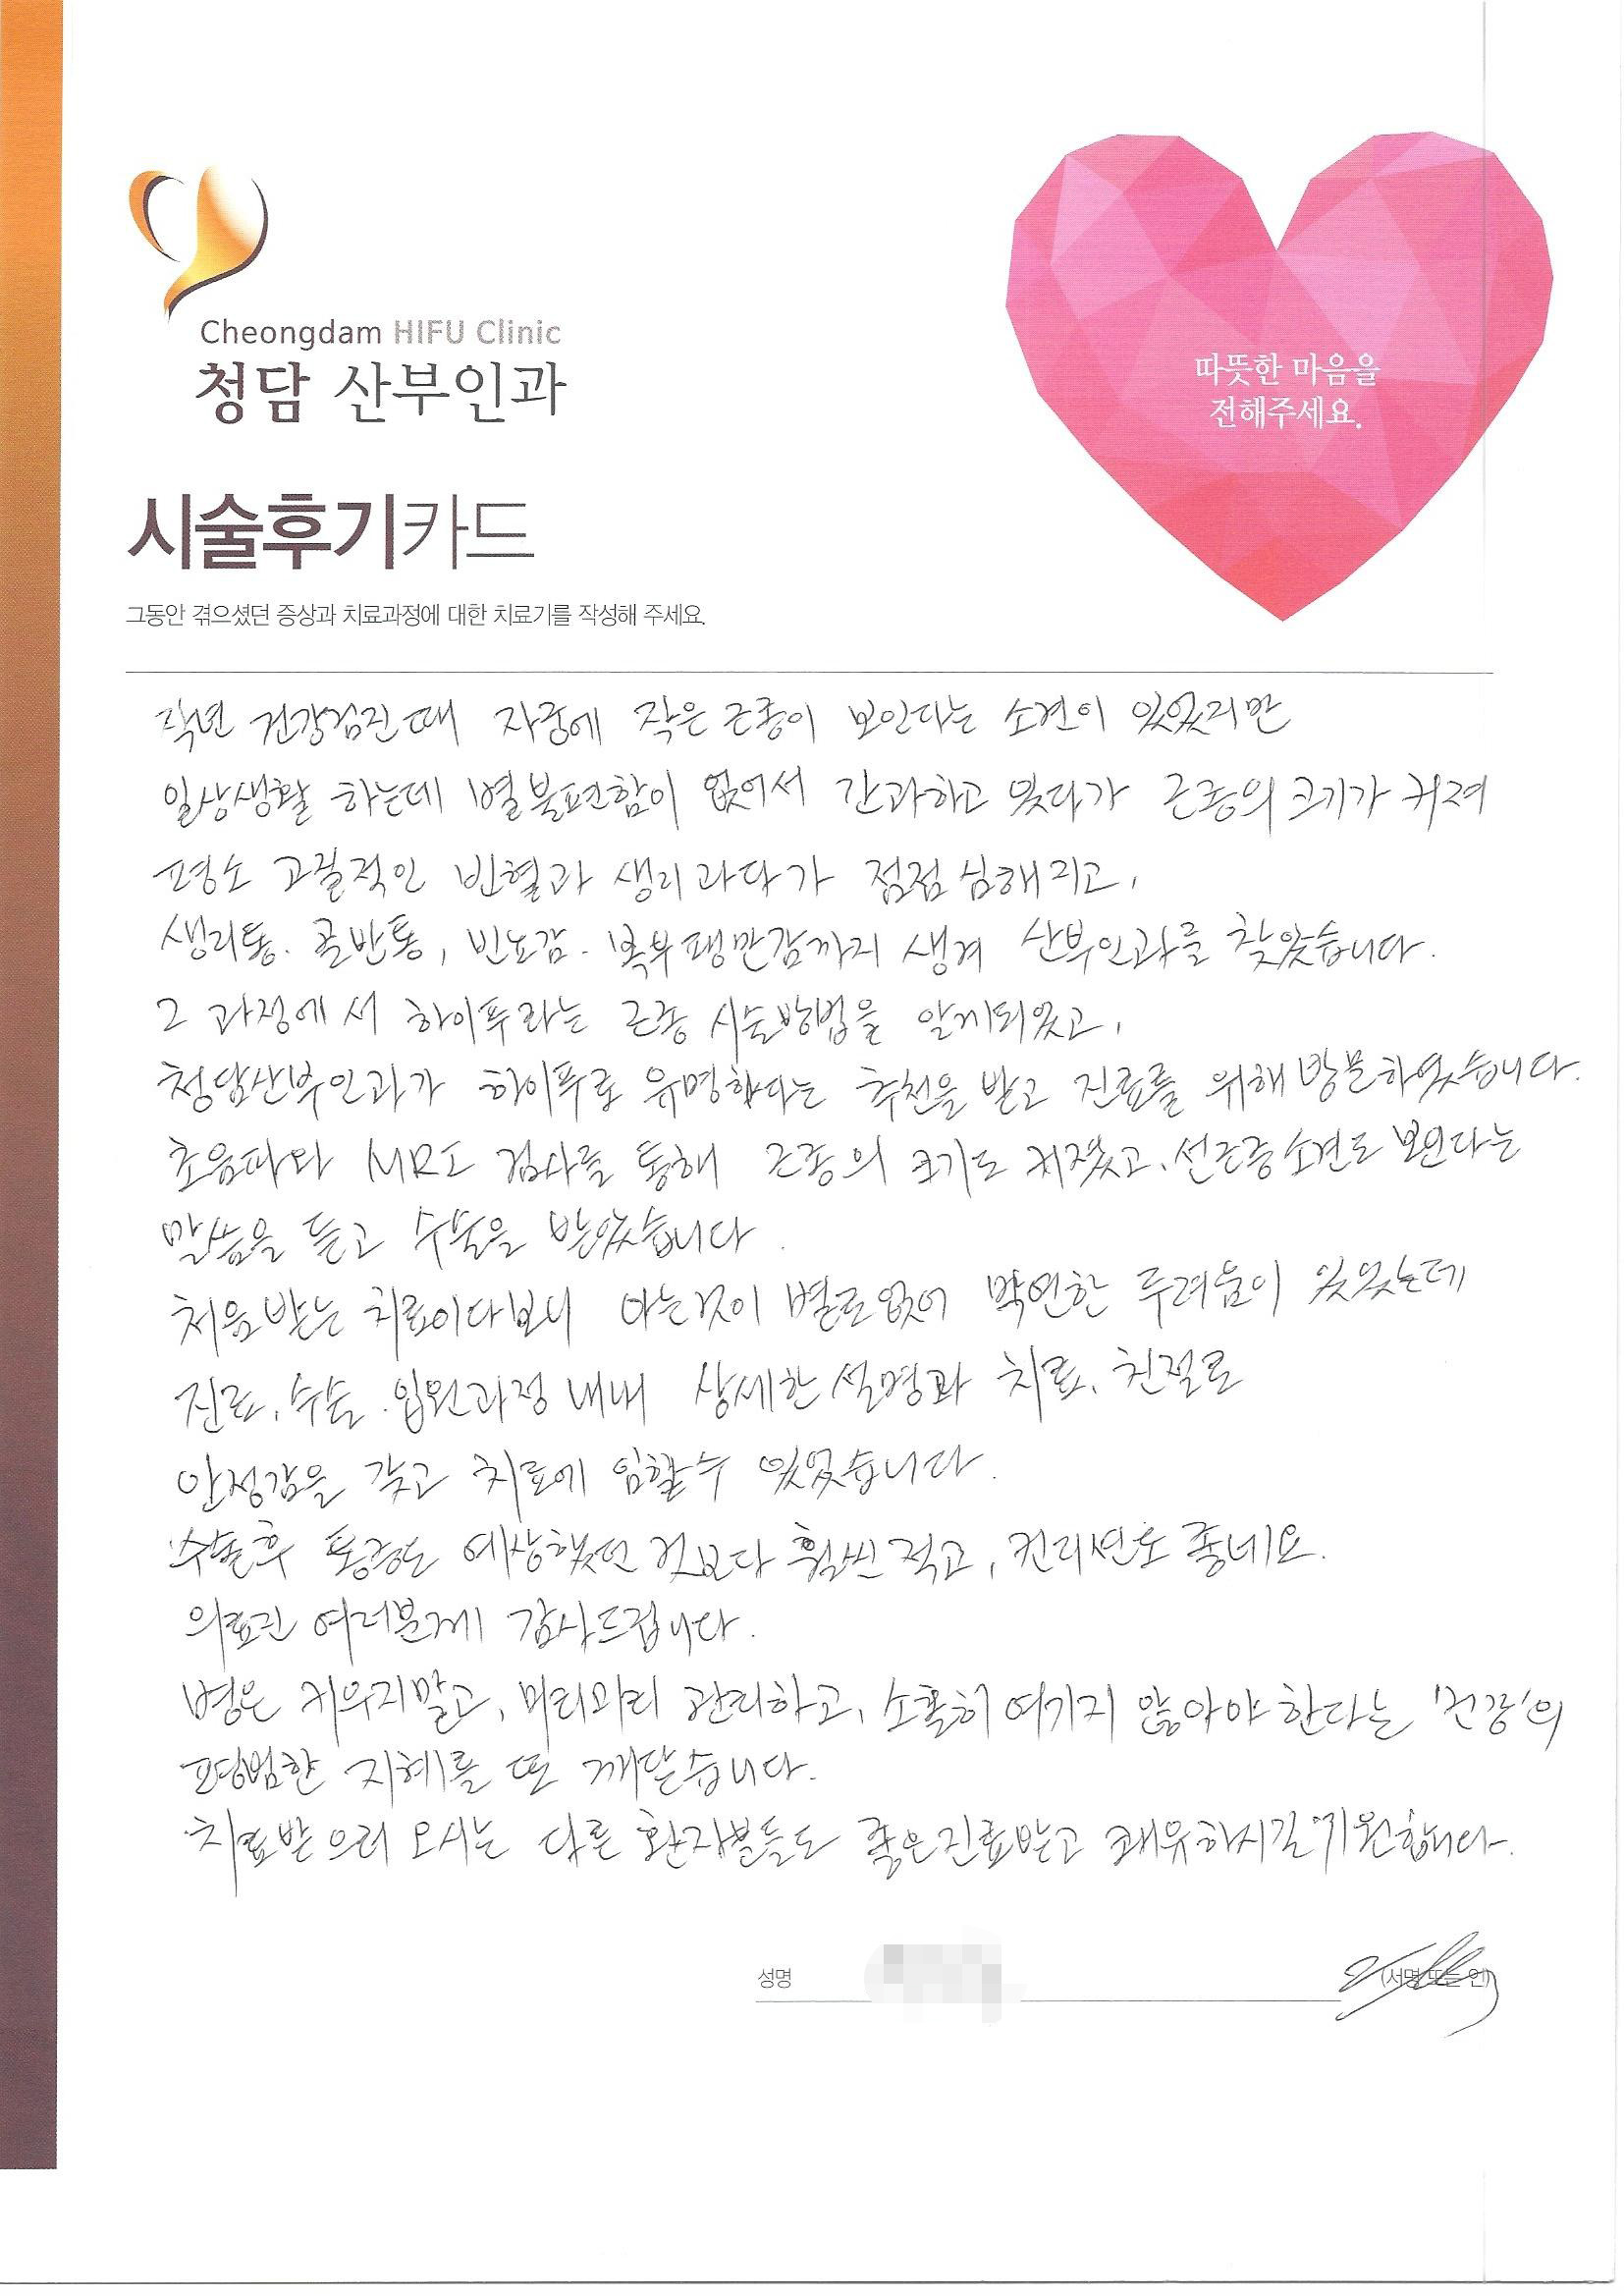 Cheongdam HIFU Clinic
청담 산부인과
따뜻한 마음을
전해주세요.
시술후기카드
그동안 겪으셨던 증상과 치료과정에 대한 치료기를 작성해 주세요.
작년 건강검진때 자궁에 작은 근종이 보인다는 소견이 있었지만
일상생활 하는데 별 불편함이 없어서 간과하고 있다가 근종의 크기가 커져
평소 고질적인 빈혈과 생리과다가 점점 심해지고,
생리통. 골반통, 빈뇨감. 복부팽만감까지 생겨 산부인과를 찾았습니다.
그 과정에서 하이푸라는 근종 시술방법을 알게되었고,
청담산부인과가 하이푸로 유명하다는 추천을 받고 진료를 위해 방문하였습니다.
초음파와 MRI 검사를 통해 근종의 크기도 커졌고, 선근종소견도 보인다는
말씀을 듣고 수술을 받았습니다.
처음 받는 치료이다보니 아는것이 별로없어 막연한 두려움이 있었는데
진료, 수술. 입원과정 내내 상세한 설명과 치료, 친절로
안정감을 갖고 치료에 임할 수 있었습니다.
수술후 통증도 예상했던 것보다 훨씬 적고, 컨디션도 좋네요.
의료진 여러분께 감사드립니다.
병은 키우지말고, 미리미리 관리하고, 소홀히 여기지 않아야 한다는 '건강'의
평범한 지혜를 또 깨닫습니다.
치료받으러 오시는 다른 환자분들도 좋은진료받고 쾌유하시길 기원합니다.
성명
(서명 또는 인)